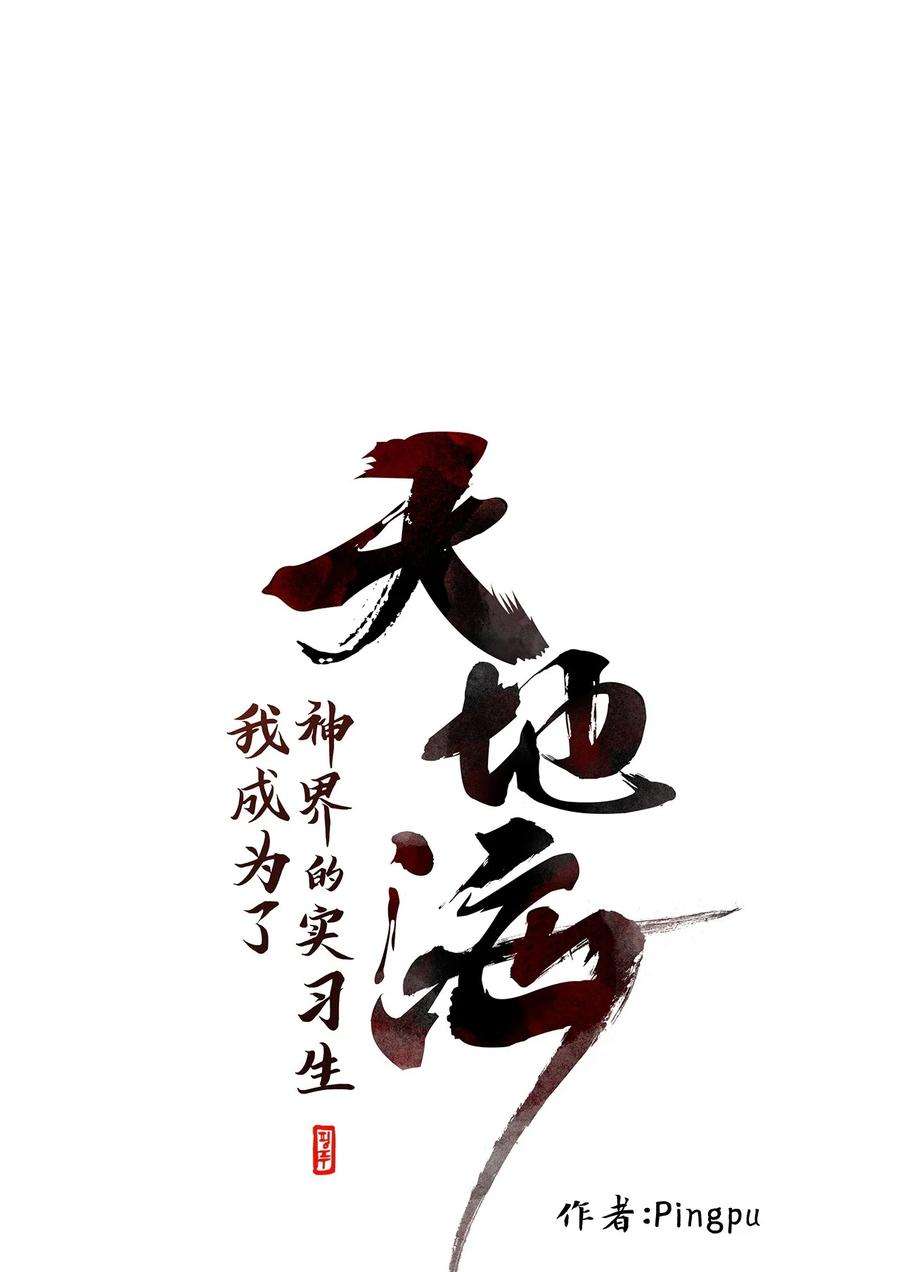 天地海
神界的实习生
我成为了
핑푸
作者:Pingpu